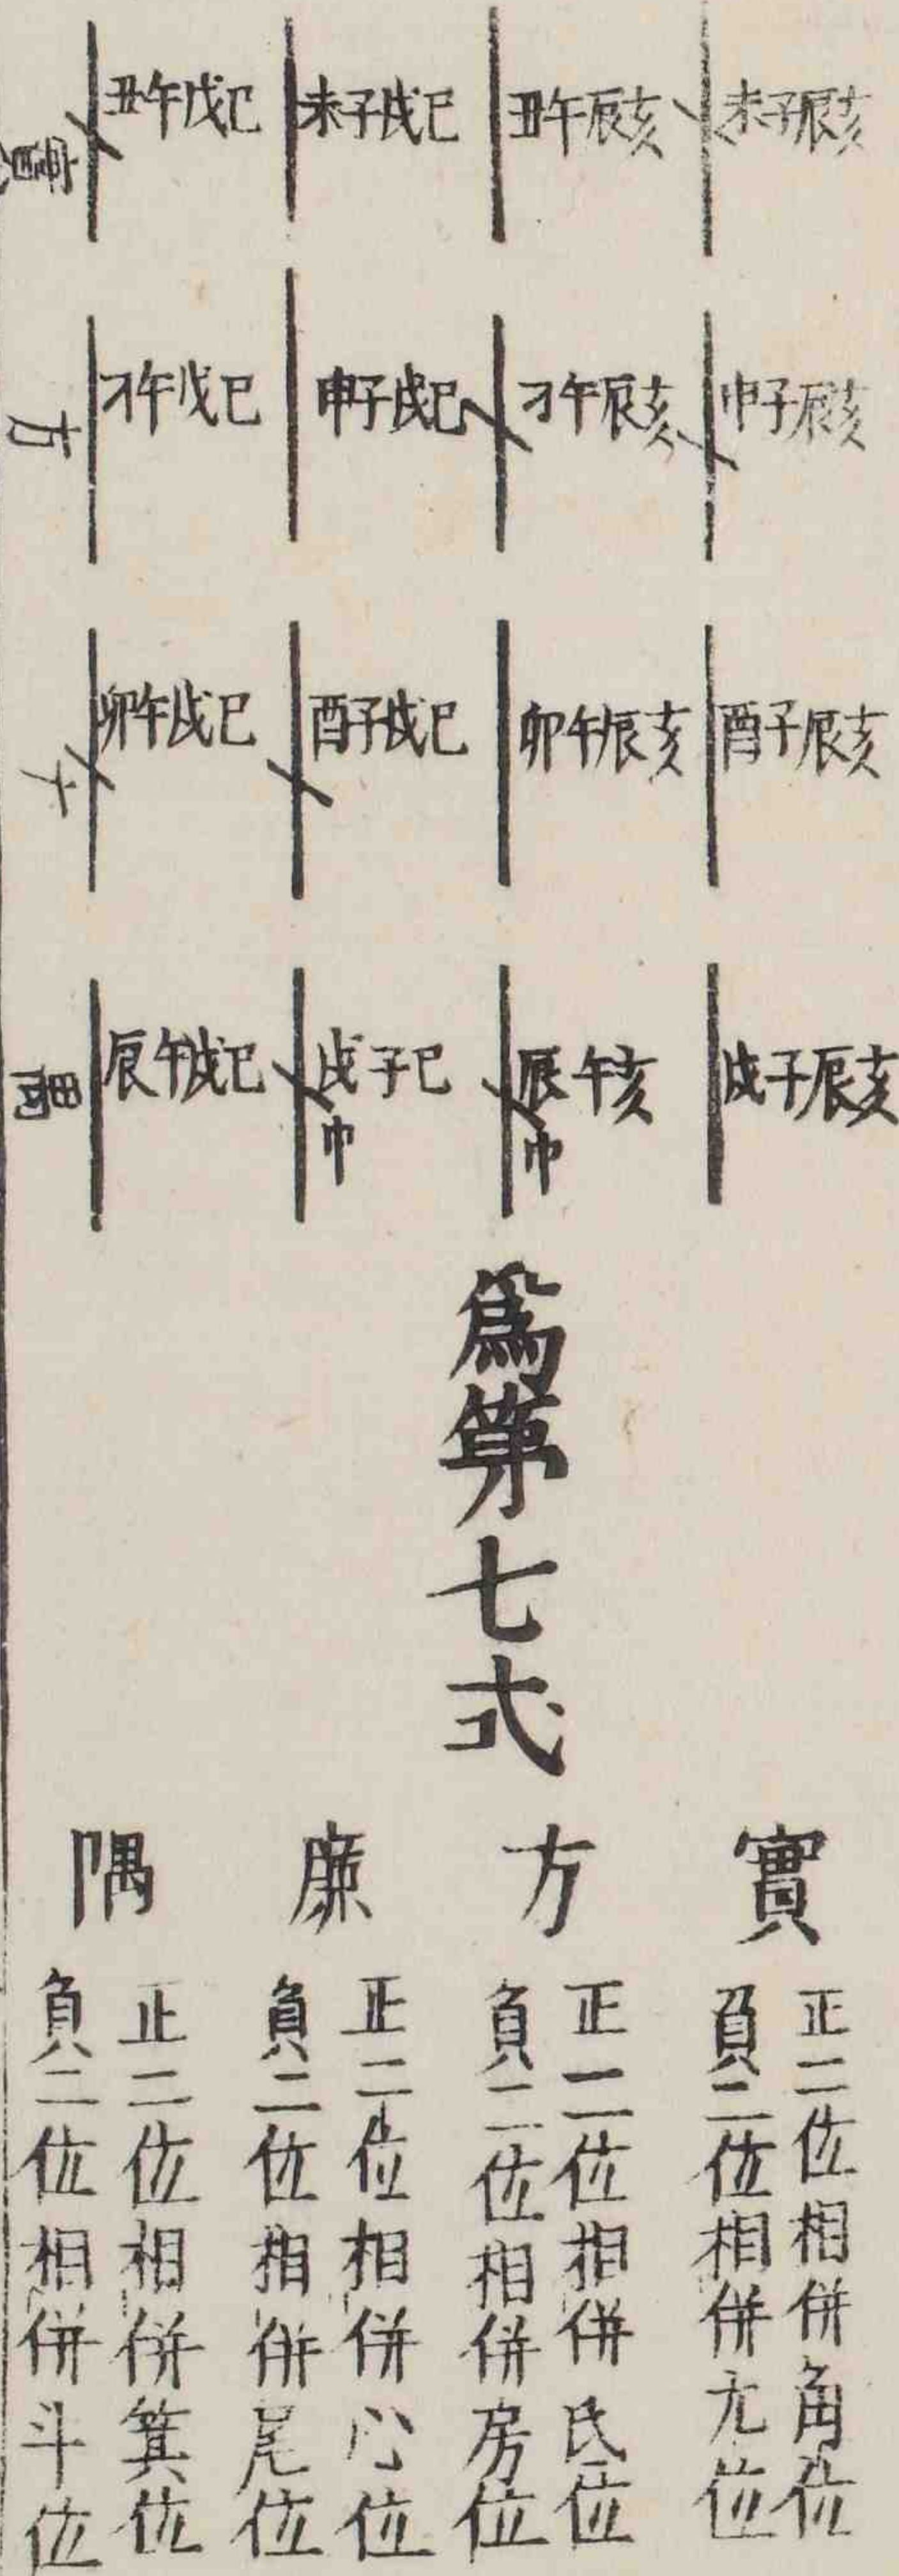 未子辰亥
申子辰亥
酉子辰亥
戌子辰亥
丑午辰亥
才午辰亥
卯午辰亥
辰巾午亥
未子戌巳
申子戌巳
酉子戌巳
戌巾子巳
丑午戌巳
才午戌巳
卯午戌巳
辰午戌巳
實
方
為第七式
實
正二位相併角位
負二位相併亢位
方
正二位相併氏位
負二位相併房位
廉
正二位相併心位
負二位相併尾位
隅
正二位相併箕位
負二位相併斗位